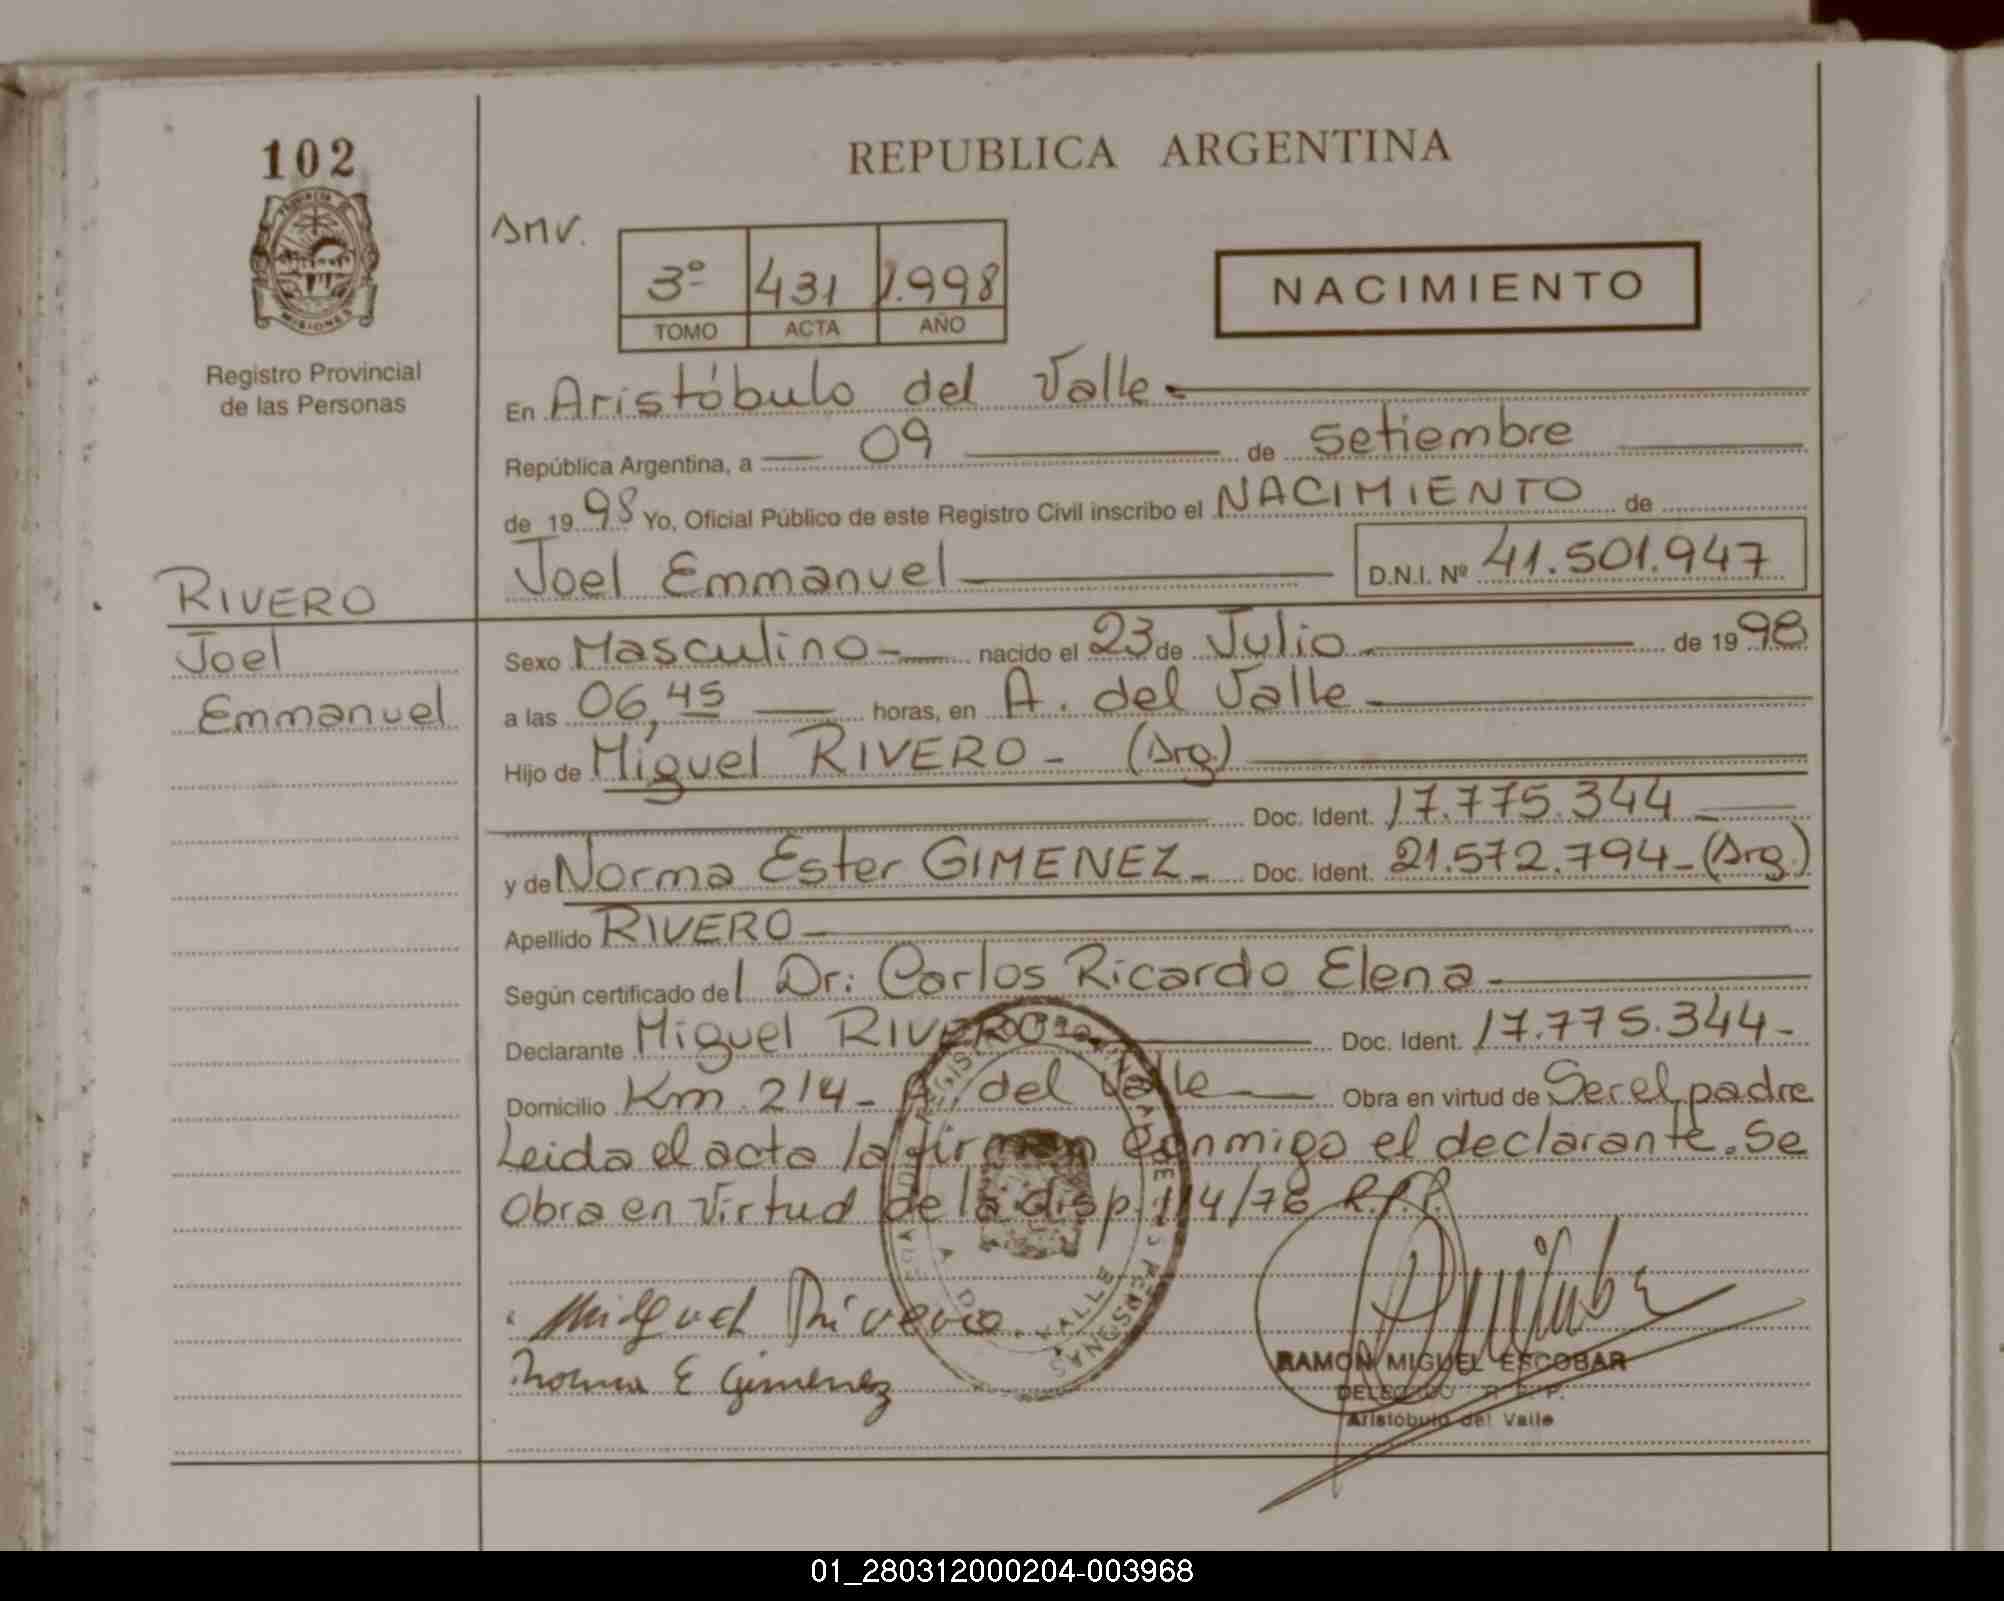 102
REPUBLICA ARGENTINA
PROVINCIA DE
MISIONES
Registro Provincial
de las Personas
3º 431 1.998
TOMO ACTA AÑO
NACIMIENTO
En Aristóbulo del Valle.
República Argentina, a 09 de Setiembre
de 1998 Yo, Oficial Público de este Registro Civil inscribo el NACIMIENTO de
Joel Emmanuel D.N.I. Nº 41.501.947
RIVERO
Joel
Emmanuel
Sexo Masculino- nacido el 23 de Julio de 1998
a las 06,45 horas, en A. del Valle
Hijo de Miguel RIVERO - (Arg.)
Doc. Ident. 17.775.344
y de Norma Ester GIMENEZ- Doc. Ident. 21.572.794-(Arg.)
Apellido RIVERO
Según certificado del Dr: Carlos Ricardo Elena
Declarante Miguel RIVERO Doc. Ident. 17.775.344-
Domicilio Km. 214- A. del Valle Obra en virtud de Ser el padre
Leida el acta la firman conmigo el declarante. Se
Obra en virtud de la disp. 114/76 R.P.P.
Miguel Rivero
Norma E Gimenez
RAMON MIGUEL ESCOBAR
DELEGADO R.P.P.
Aristóbulo del Valle
01_280312000204-003968